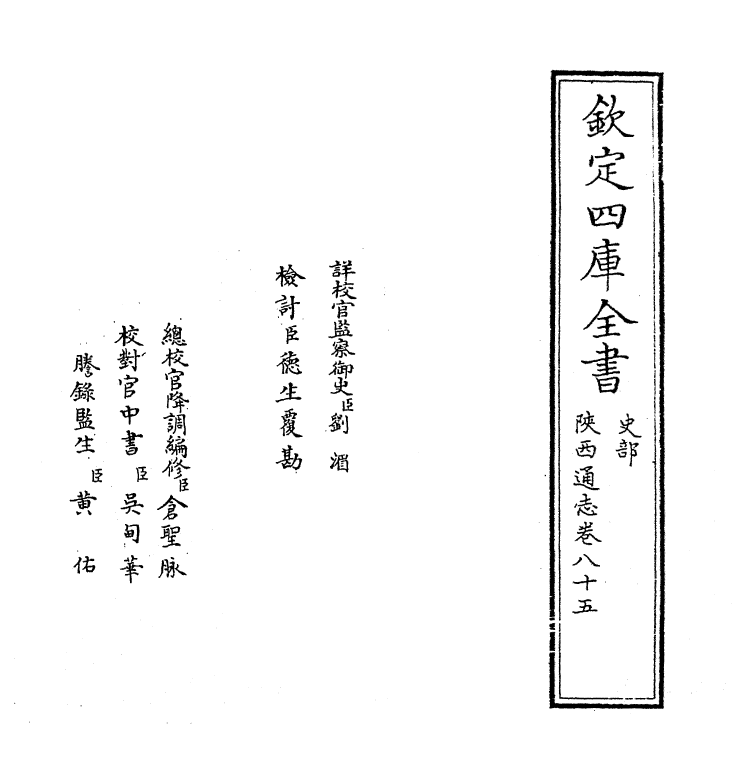 欽定四庫全書
史部
陝西通志卷八十五
詳校官監察御史臣劉湄
檢討臣德生覆勘
總校官降調編修臣倉聖脉
校對官中書臣吳甸華
謄錄監生臣黄佑